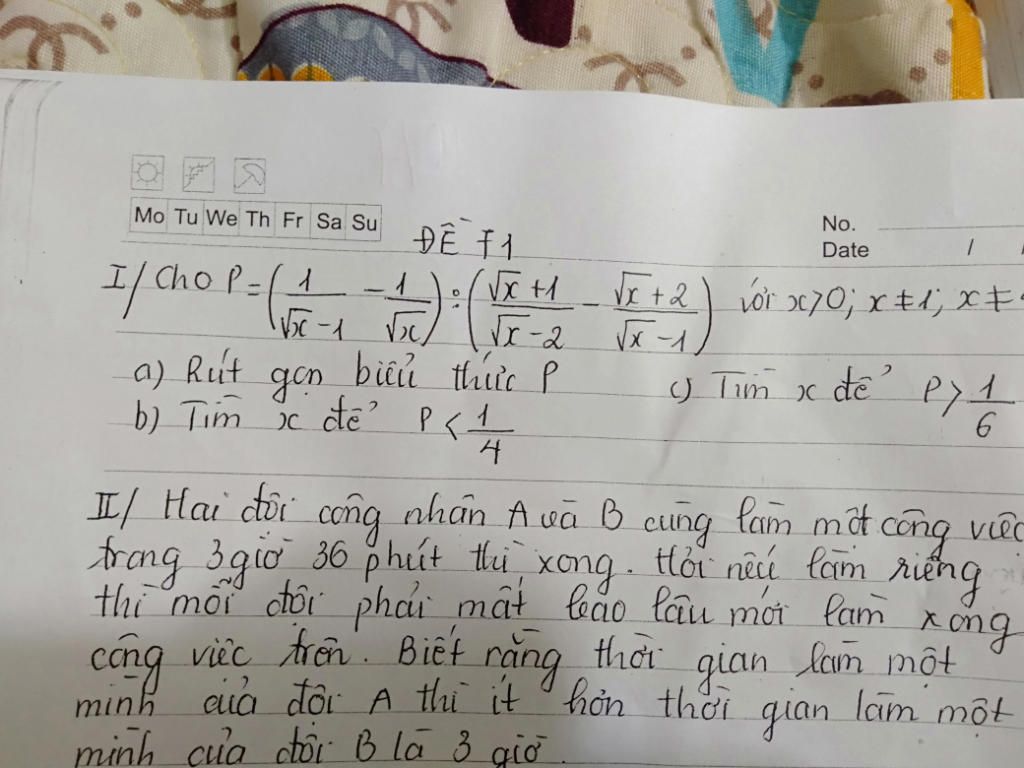 Mo Tu We Th Fr Sa Su
No.
Date / /
ĐỀ 71
I/ Cho P = (1/(√x - 1) - 1/√x) : ((√x + 1)/(√x - 2) - (√x + 2)/(√x - 1)) với x>0; x ≠ 1; x ≠
a) Rút gọn biểu thức P
c) Tìm x để P > 1/6
b) Tìm x để P < 1/4
II/ Hai đội công nhân A và B cùng làm một công việc
trong 3 giờ 36 phút thì xong. Hỏi nếu làm riêng
thì mỗi đội phải mất bao lâu mới làm xong
công việc trên. Biết rằng thời gian làm một
mình của đội A thì ít hơn thời gian làm một
mình của đội B là 3 giờ.